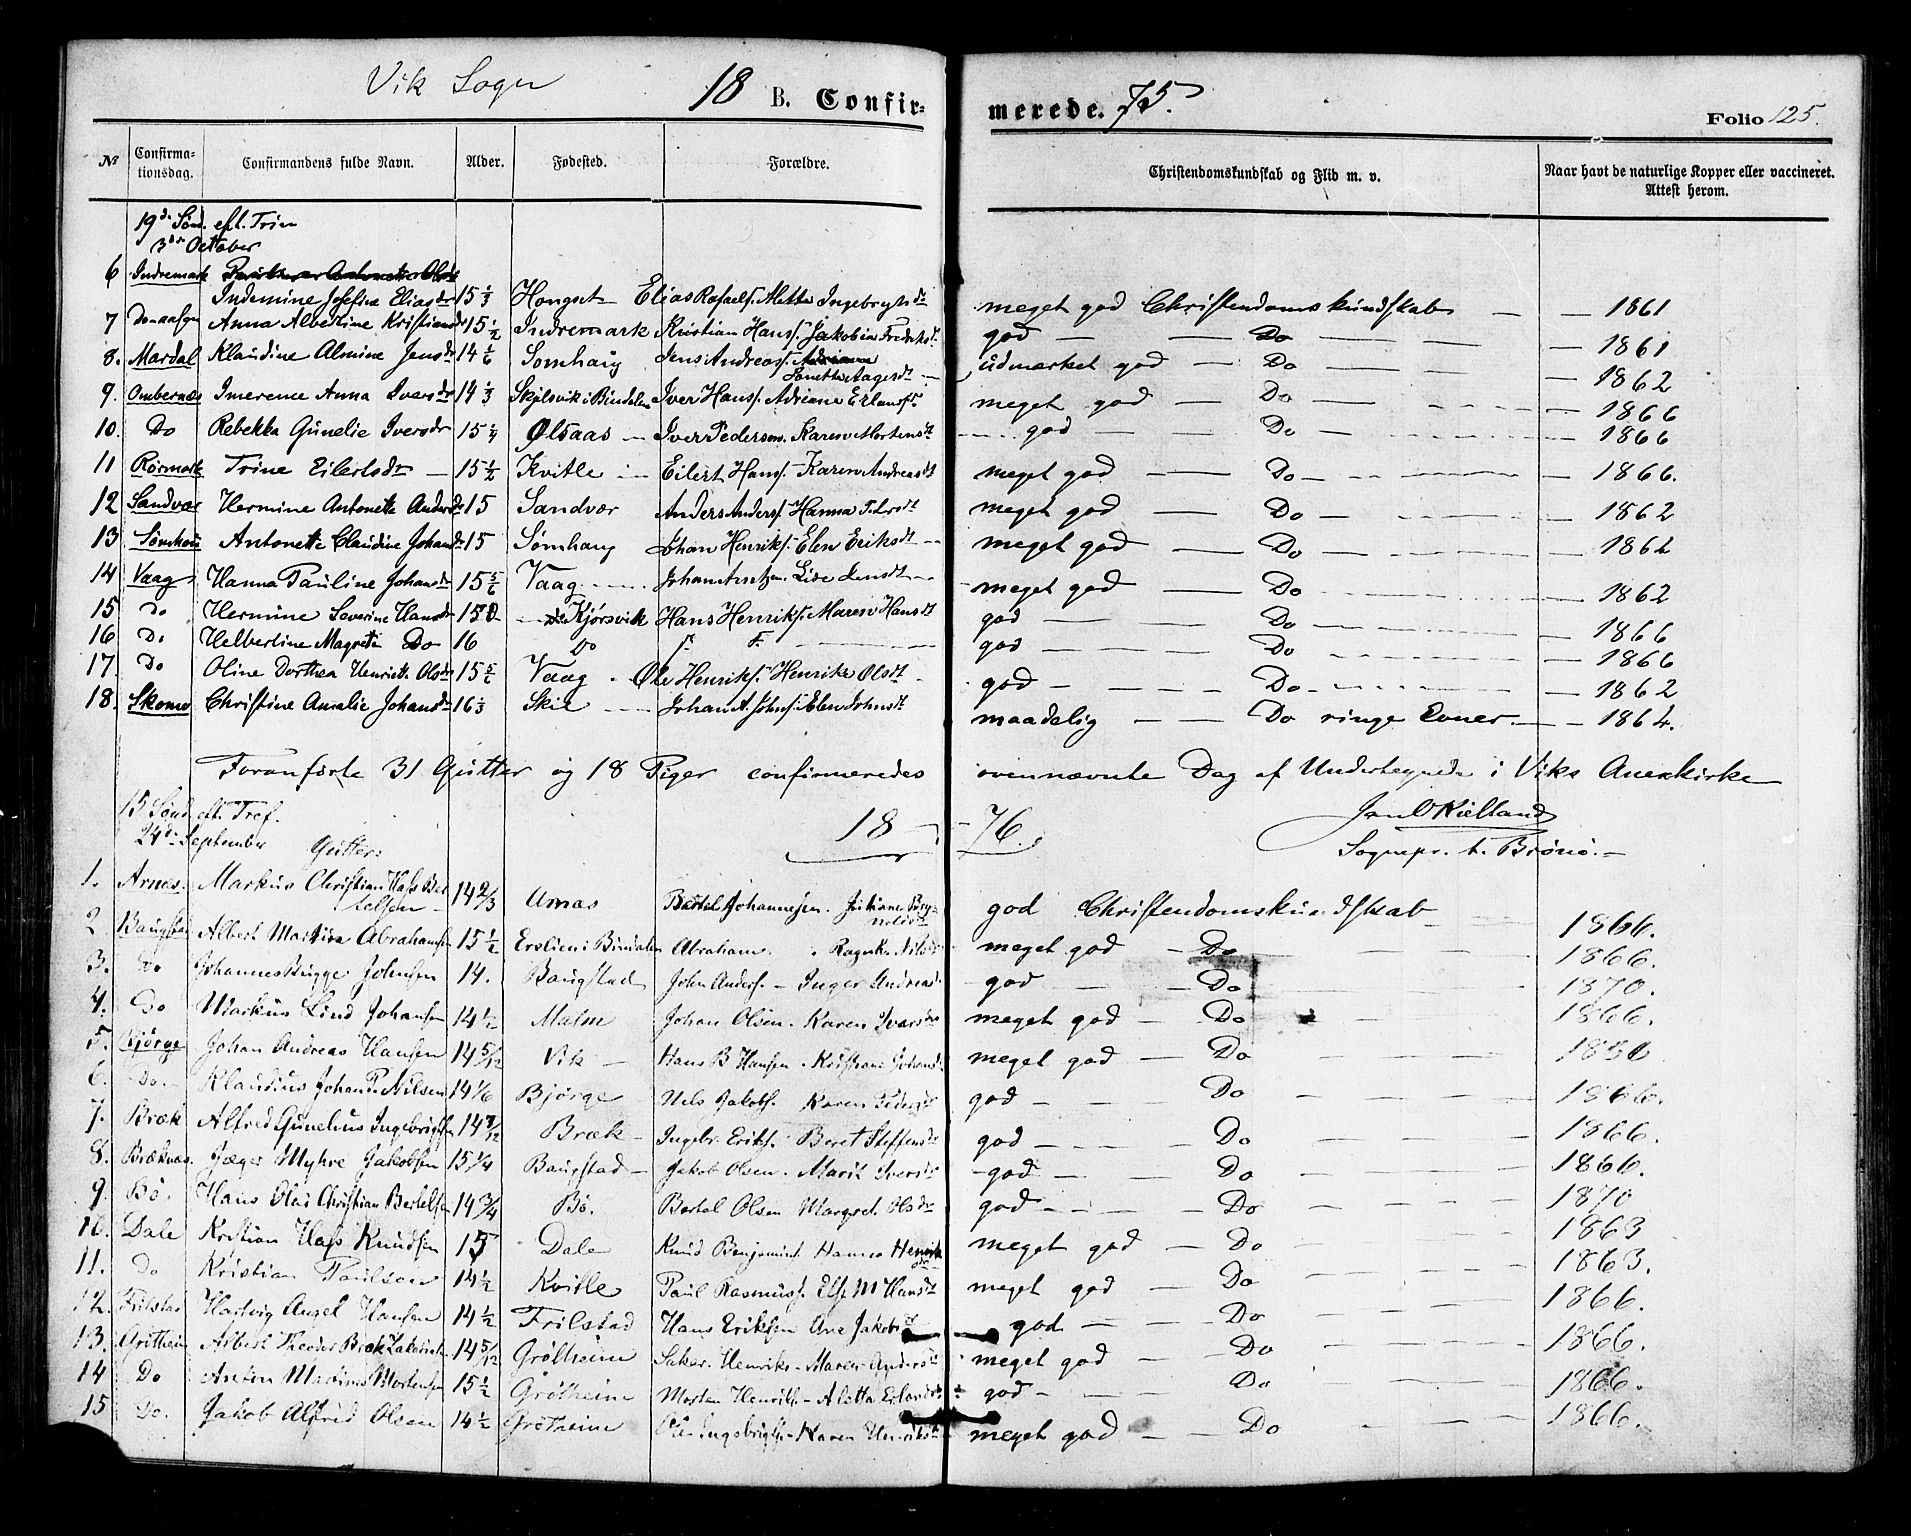 Vik Sogn 18 B. Confirmerede. 75. Folio 125.
№ Confirmationsdag. Confirmandens fulde Navn. Alder. Fødested. Forældre. Christendomskundskab og Flid m. v. Naar havt de naturlige Kopper eller vaccineret. Attest herom.
19de Sønd. eft. Trin
3die October
6 Indremark
Josefine Eliasdr 15 1/3 Hongset Elias Rafaels. Mette Ingebrigtsdt meget god Christendomskundskab — — 1861
7 Anna Albertine Kristiansdr 15 1/2 Indremark Kristian Hans. Jakobia Fredriksd. god — — Do — 1861
8. Mardal Klaudine Almine Jensdr 14 1/6 Sømhaug Jens Andreas. udmærket god — Do — 1862
9. Ombernæs Imerence Anna Iversdr 14 1/3 Skjelsvik i Bindalen Iver Hans. Adriane Erlands. meget god — Do — 1866
10. Do Rebekka Gunelie Iversdr 15 1/4 Ølsaas — Iver Pedersen. Karen Mortensdt god — Do — 1866
11 Rørmark Trine Eilertsdr — 15 1/2 Kvitle Eilert Hans. Karen Andreasdt meget god — Do — 1866.
12 Sandvær Hermine Antonette Andersdr 15 Sandvær Anders Anders. Hanna meget god — Do — 1862
13 Sømhau Antonette Claudine Johansdr 15 Sømhaug Johan Henriks. Elen Eriksdt meget god — Do — 1862
14 Vaag Hanna Pauline Johansdr 15 5/6 Vaag Johan Arntzen. Lise Jensdt meget god — Do — 1862
15 Do Hermine Severine Hansdr 15 Kjørsvik Hans Henriks. Maren Hansdt god — Do — 1866
16 Do Helbertine Magreta Do 16 Do god — Do — 1866
17. Do Oline Dorthea Henriette Olsdr 15 5/6 Vaag Ole Henriks. Henrike Olsdt god — Do — 1862
18. Skomo Christine Amalie Johansdr 16 1/3 Skie Johan A. Johns. Elen Johnsdt maadelig — — Do ringe Evner — 1864.
Foranførte 31 Gutter og 18 Piger confirmeredes ovennævnte Dag af Undertegnede i Viks Anexkirke
Jan O Kielland
Sognepr. t. Brønø.
15 Sønd. eft. Tref.
24de September 18 — 76.
Gutter
1. Arnæs. Markus Christian Hass Bertelsen 14 2/3 Arnæs Bertel Johannesen. god Christendomskundskab 1866.
2 Baugstad Albert Martin Abrahamsen 15 1/2 i Bindalen Abraham Nilsdt meget god — Do 1866.
3. Do Johannes Bugge Johnsen 14. Baugstad John Anders. — Inger Andreasd. god — Do 1870.
4. Do Markus Lind Johansen 14 1/2 Malm Johan Olsen. Karen Iversdr meget god — Do 1866.
5. Bjørge Johan Andreas Hansen 14 5/12 Vik — Hans B Hansen. Kristiane Johansd meget god — Do
6. Do. Klaudius Johan P. Nilsen 14 1/6 Bjørge Nils Jakobs. Karen Pedersdr god — Do 1866.
7. Bræk Alfred Gunelius Ingebrigtsen 14 7/12 Bræk — Ingebr. Eriks. Beret Steffensdt god — Do 1866.
8. Bræknæs. Jæger Myhre Jakobsen 15 1/4 Baugstad — Jakob Olsen. Marit Iversdt god — Do 1866.
9. Bø. Hans Olai Christian Bertelsen 14 3/4 Bø. Bertel Olsen Margret. Olsdt god — Do 1870
10. Dale Kristian Hass Knudsen 15 Dale Knud Benjamins. Hanna Henriksdr meget god — Do 1863
11. Do Kristian Paulsen 14 1/2 Kvitle Paul Rasmus. Else M Hansdt meget god — Do 1863.
12. Frilstad Hartvig Angel Hansen 14 1/2 Frilstad Hans Eriksen Ane Jakobsdr god — Do 1866.
13. Grøtheim Albert Theodor Bræk Zakariasen 14 5/12 Grøtheim Sakar. Henriks — Maren Andersdt meget god — Do 1866.
14 Do Anton Martinus Mortensen 15 1/2 Grøtheim Morten Henriks — Aletta Erlandsdt god — Do 1866.
15 Do. Jakob Alfred Olsen 14 1/2 Grøtheim Ole Ingebrigts — Karen Henriksdt meget god — Do 1866.